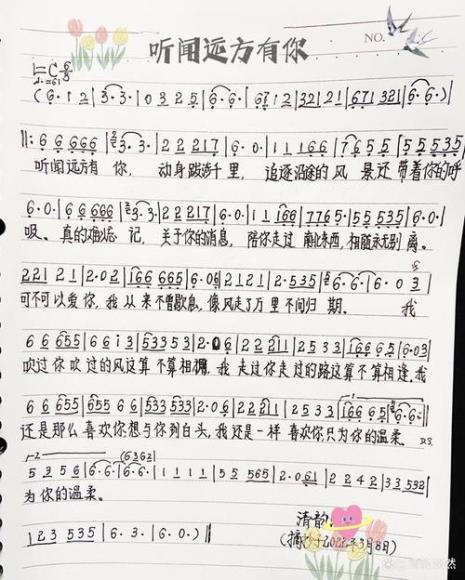 听闻远方有你
NO.
1=C 6/8
(6· 1 2 | 3· 3· | 0 3 2 5 | 6· 6· | 67 1 2 | 32 1 21 | 671 321 | 6· 6· )
||: 6 6 666 | 3· 3· | 2 2 217 | 6· 0 | 1 1 166 | 7 6 5 5 | 5 5 535 |
听闻远方有 你, 动身跋涉千 里, 追逐沿途的 风 景还 带着你的呼
6· 0· | 6 6 666 | 3· 3· | 2 2 217 | 6· 0 | 1 1 166 | 7765· | 55 535 | 6· 0· |
吸。 真的难以忘 记, 关于你的消息, 陪你走过 南北东西,相随永无别 离。
221 2 1 | 2· 02 | 166 665 | 6· 06 | 2121 2 | 2· 535 | 6· 6· | 6· 0 3 |
可不可以爱 你,我 从来 不曾歇息,像风走了万 里 不问归 期。 我
6 6 655 | 6 6 1 3 | 533 53 | 2· 0 6 | 2 2 211 | 2 5 3 3 | 166 6 5 | 6· 03 |
吹过 你吹 过的风这算 不算相拥,我 走过你走过的路这算不算相逢,我
6 6 655 | 655 6 6 | 533 533 | 2· 0 6 | 2 2 211 | 2 5 3 3 | 166 6 5 | 6· 6· :||
还是 那么 喜欢你想与 你到白头,我还是一样 喜欢你,只为你的温柔。 D.S.
5 3 5 6 | 6· 6· | 6· 6· | 1 1 1 1 | 5 5 565 | 2· 061 | 2 2 4 2 | 33 538 |
为 你的温柔。
123 535 | 6· 3· | 6· 0· ||
清韵
(摘抄于2022年3月8日)